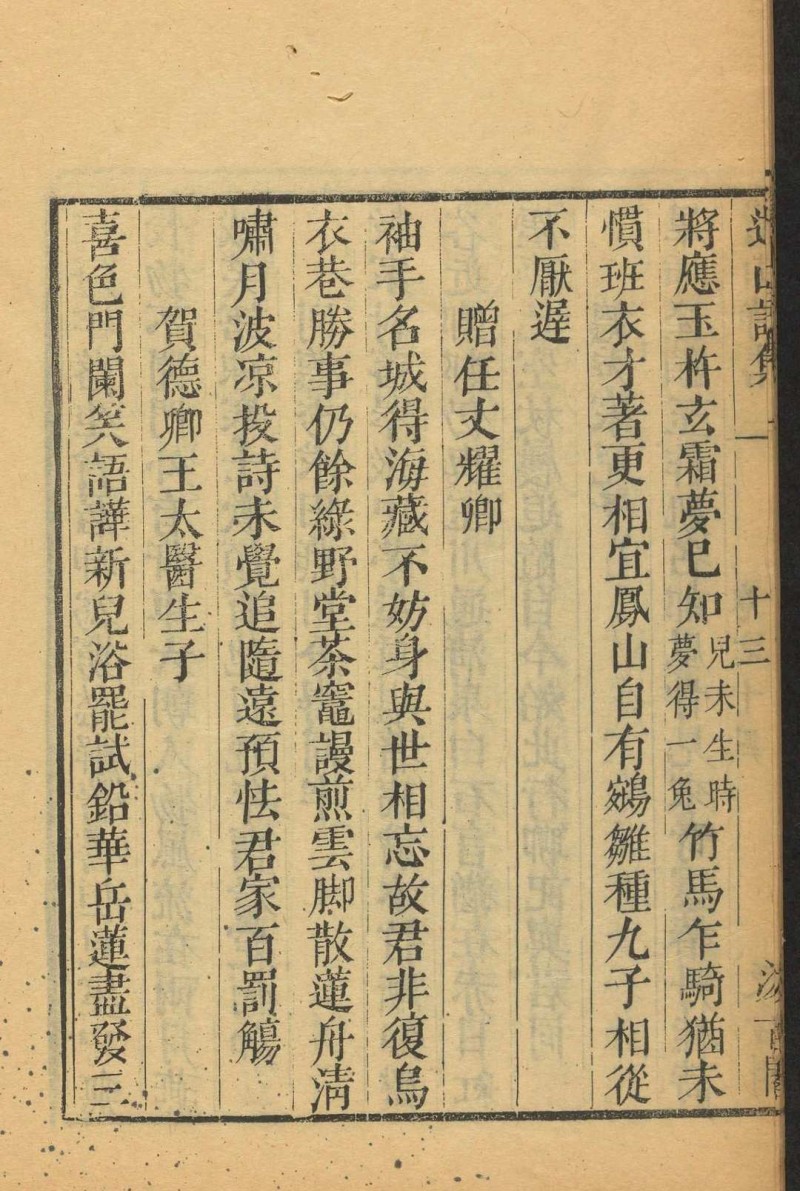 遺山詩集 十三 汲古閣
將應玉杵玄霜夢巳知兒未生時夢得一兔竹馬乍騎猶未
慣班衣才著更相宜鳳山自有鵷雛種九子相從
不厭遲
贈任丈耀卿
袖手名城得海藏不妨身與世相忘故君非復烏
衣巷勝事仍餘綠野堂茶竈謾煎雲脚散蓮舟淸
嘯月波凉投詩未覺追隨遠預怯君家百罰觴
賀德卿王太醫生子
喜色門闌笑語譁新兒浴罷試鉛華岳蓮盡發三